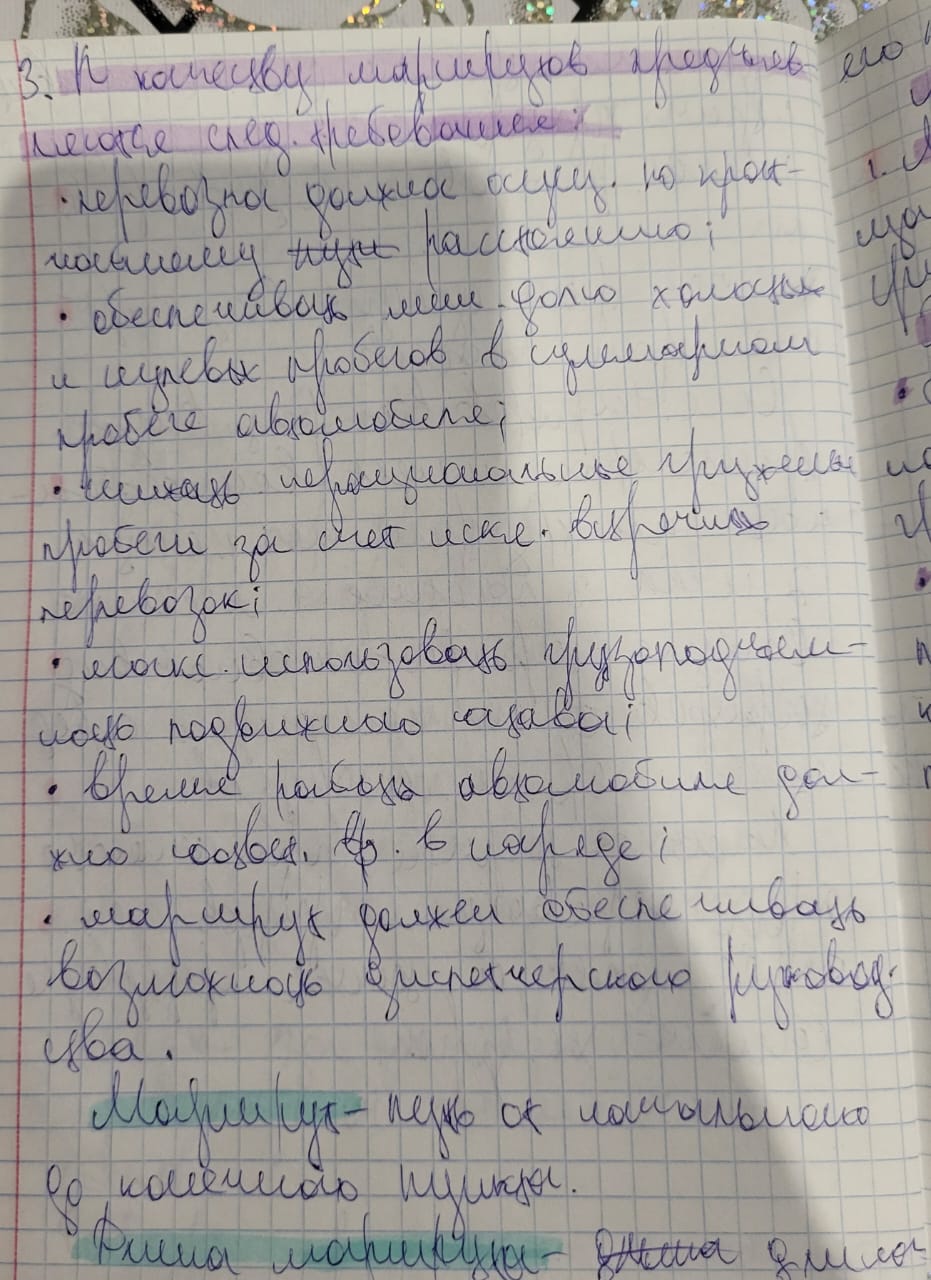 3. К качеству маршрутов предъяв-
ляются след. требования:
· перевозка должна осущ. по крат-
чайшему пути расстоянию;
· обеспечивать мин. долю холостых
и нулевых пробегов в суммарном
пробеге автомобиля;
· снижать нерациональные груженые
пробеги за счет искл. встречных
перевозок;
· макс. использовать грузоподъем-
ность подвижного состава;
· время работы автомобиля дол-
жно соотв. вр. в наряде;
· маршрут должен обеспечивать
возможность диспетчерского руковод-
ства.
Маршрут - путь от начального
до конечного пункта.
Длина маршрута - длина
его
1.